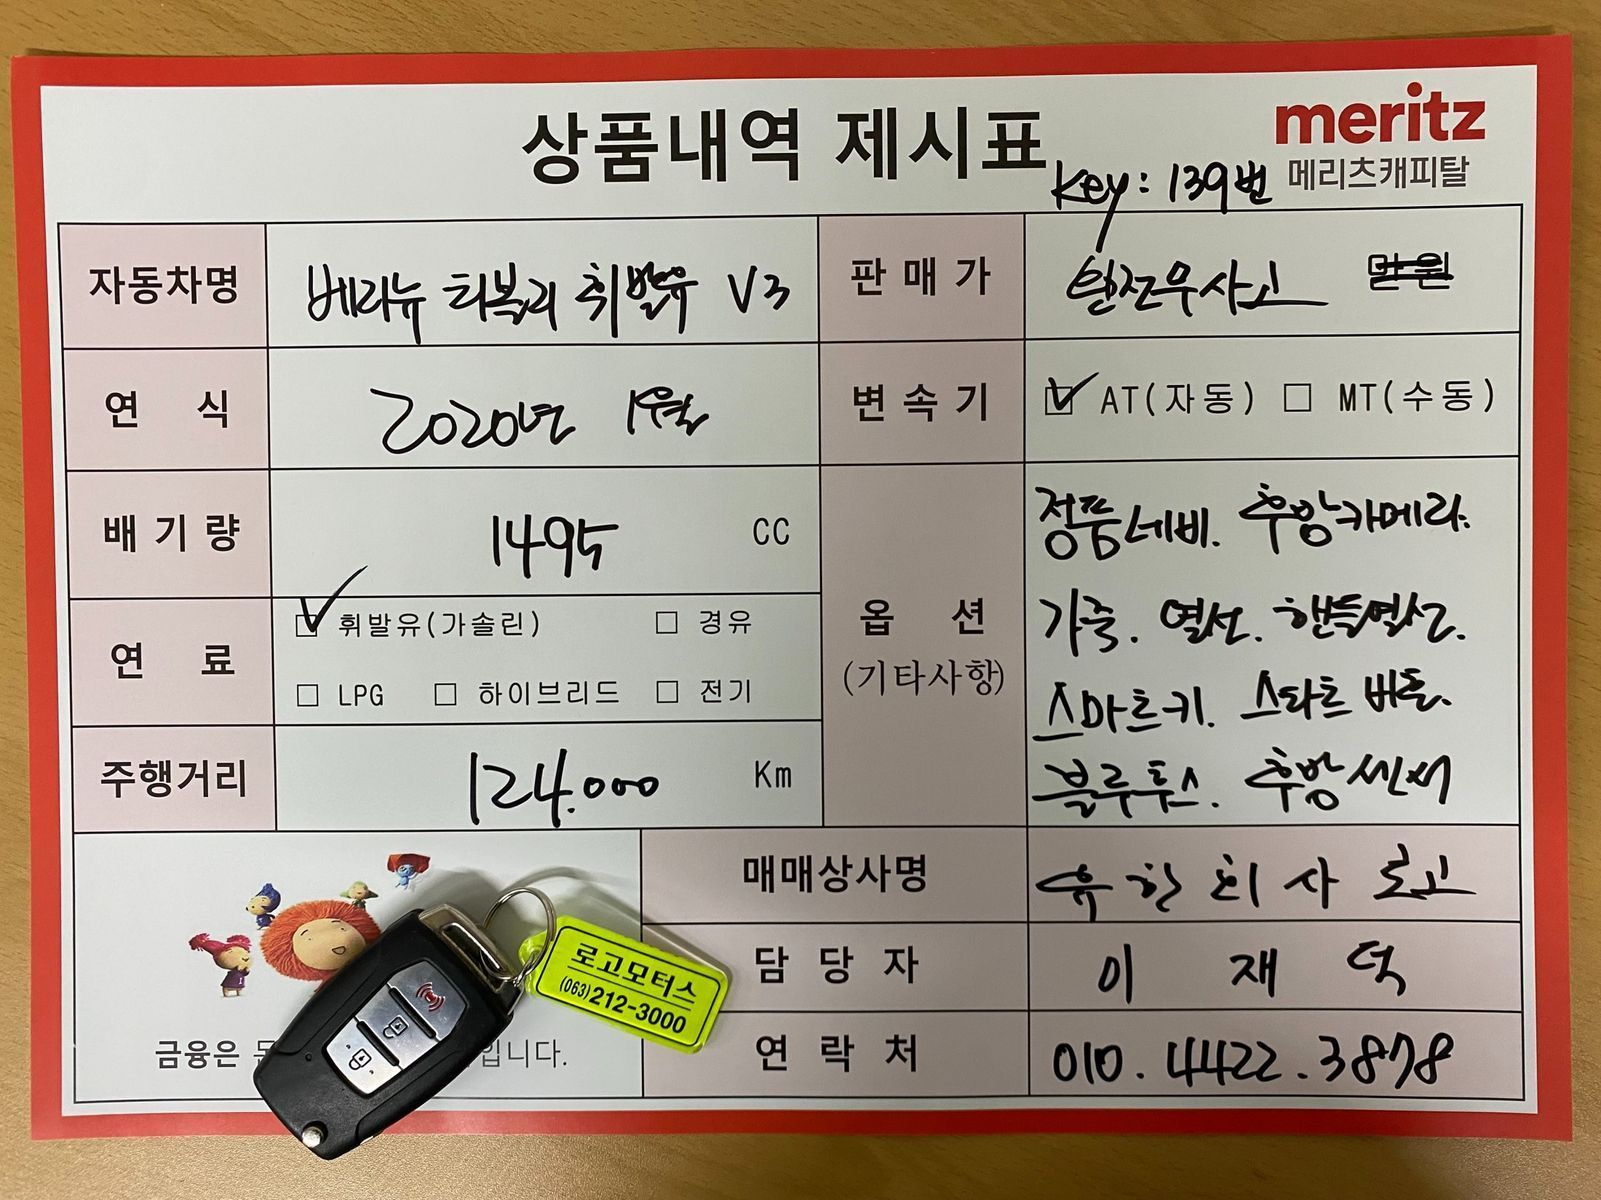 상품내역 제시표
meritz
메리츠캐피탈
Key: 139번
자동차명 베리뉴 티볼리 휘발유 V3
판매가 완전무사고 만원
연식 2020년 1월
변속기 AT(자동) MT(수동)
배기량 1495 CC
연료 휘발유(가솔린) 경유
LPG 하이브리드 전기
주행거리 124.000 Km
옵션
(기타사항)
정품네비. 후방카메라.
가죽. 열선. 핸들열선.
스마트키. 스타트버튼.
블루투스. 후방센서
매매상사명 유한회사 로고
담당자 이재덕
연락처 010.4422.3878
금융은
입니다.
로고모터스
(063)212-3000